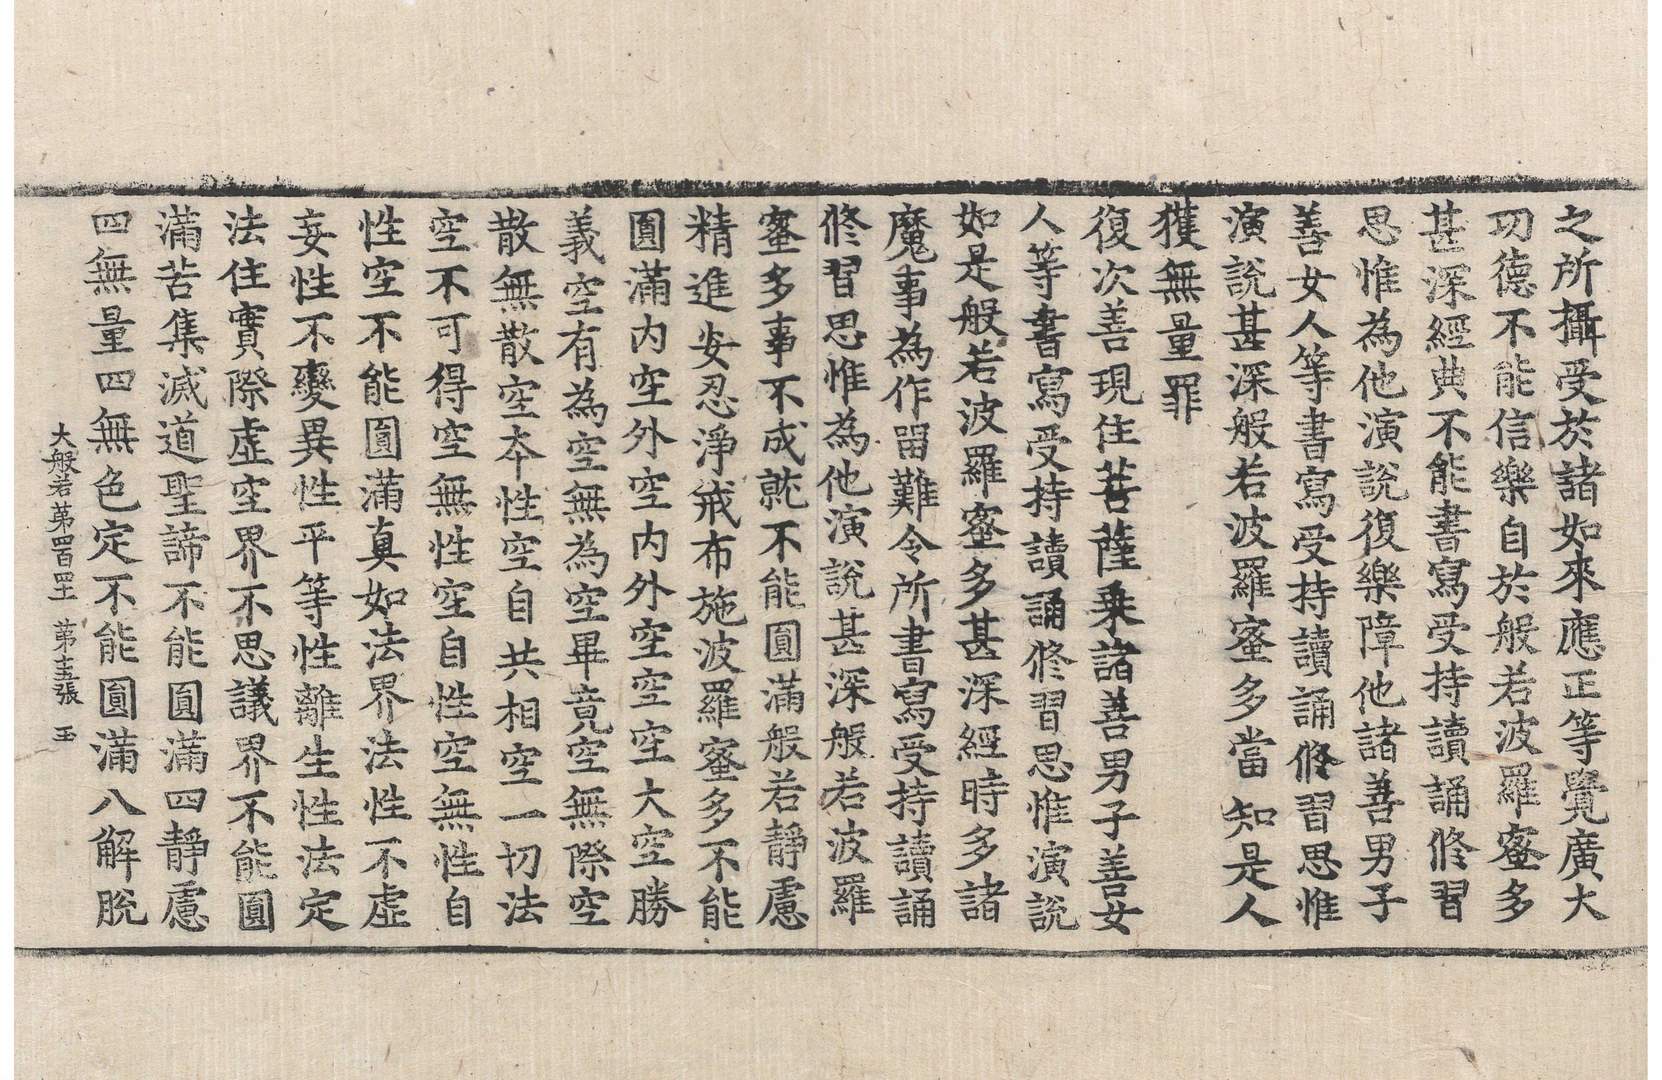 之所攝受於諸如來應正等覺廣大
功德不能信樂自於般若波羅蜜多
甚深經典不能書寫受持讀誦修習
思惟為他演說復樂障他諸善男子
善女人等書寫受持讀誦修習思惟
演說甚深般若波羅蜜多當知是人
獲無量罪
復次善現住菩薩乗諸善男子善女
人等書寫受持讀誦修習思惟演說
如是般若波羅蜜多甚深經時多諸
魔事為作留難令所書寫受持讀誦
修習思惟為他演說甚深般若波羅
蜜多事不成就不能圓滿般若靜慮
精進安忍淨戒布施波羅蜜多不能
圓滿内空外空内外空空空大空勝
義空有為空無為空畢竟空無際空
散無散空本性空自共相空一切法
空不可得空無性空自性空無性自
性空不能圓滿真如法界法性不虛
妄性不變異性平等性離生性法定
法住實際虛空界不思議界不能圓
滿苦集滅道聖諦不能圓滿四靜慮
四無量四無色定不能圓滿八解脫
大般若第四百四十 第十五張 玉